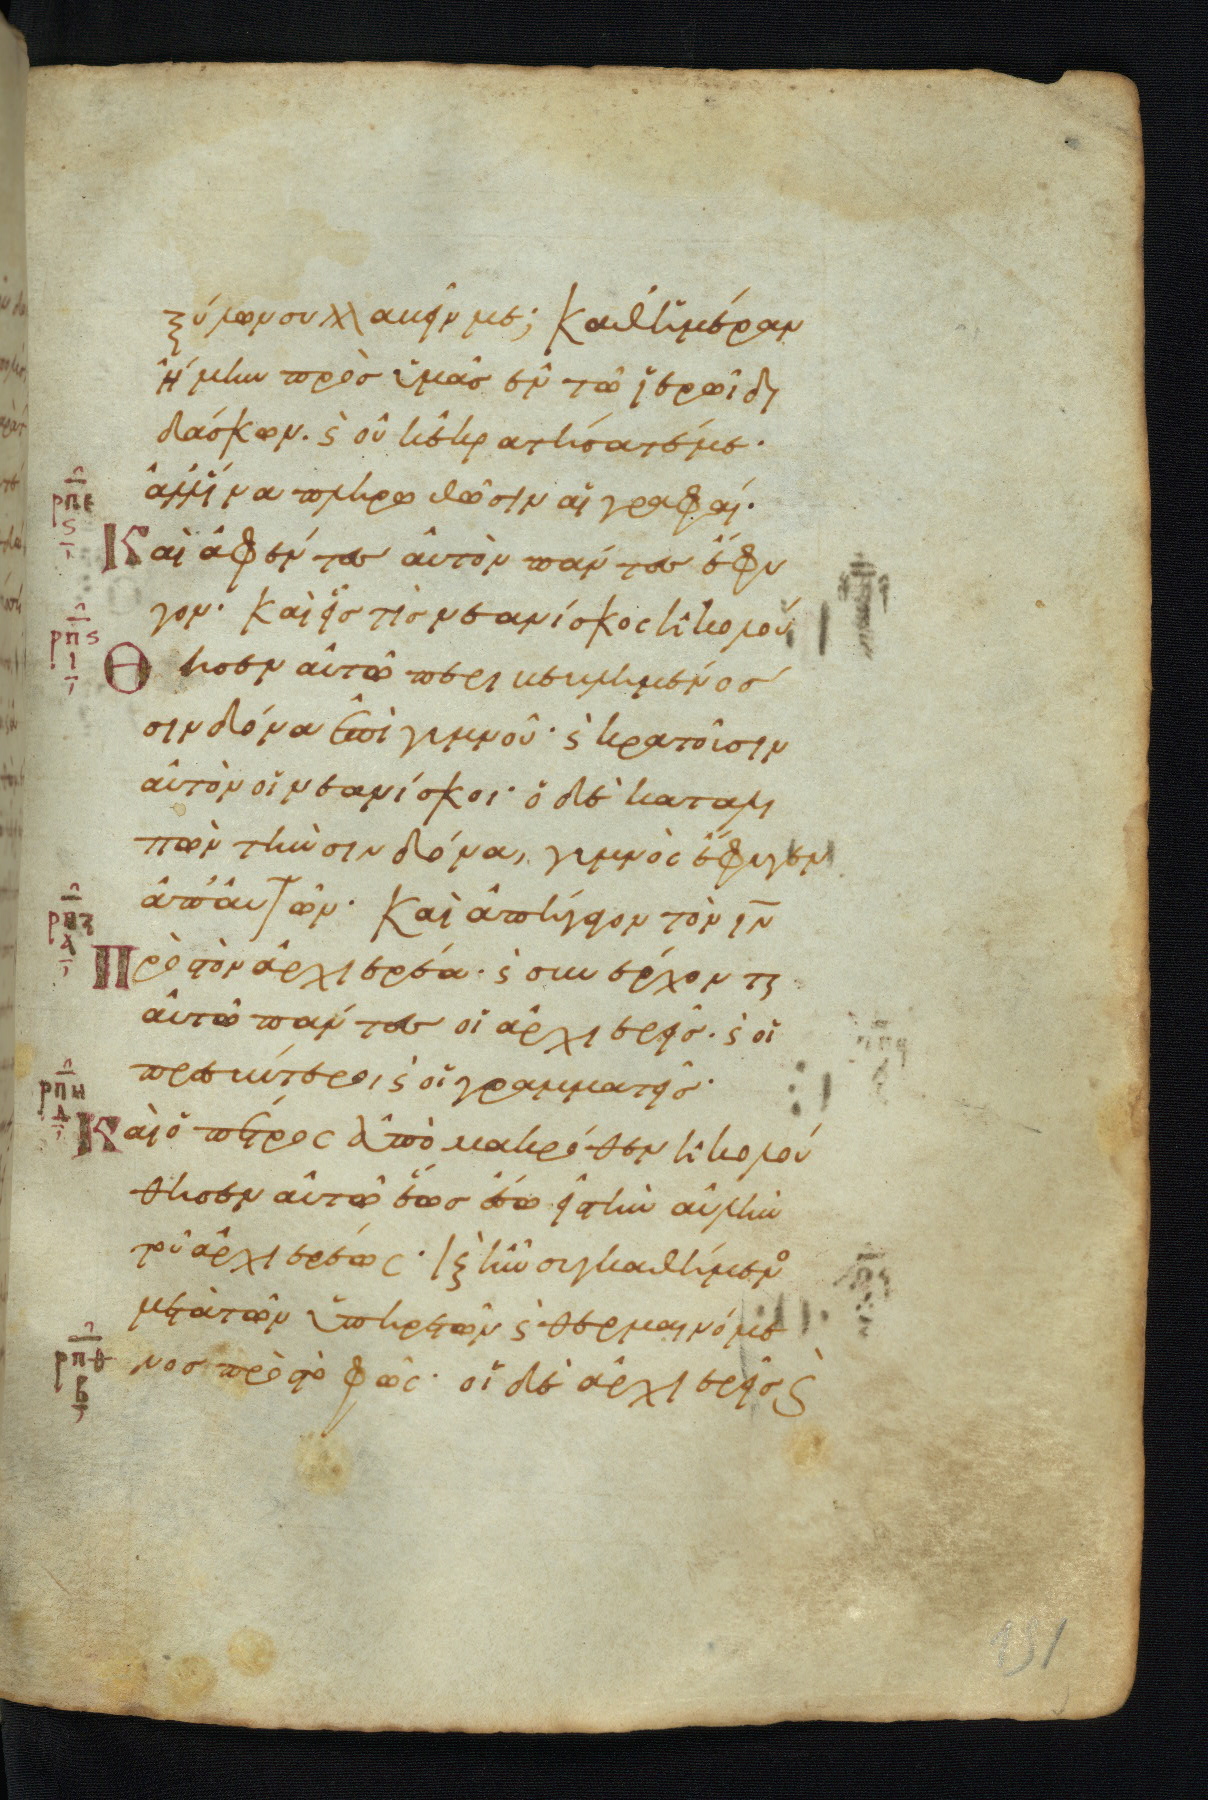 ξύλων συλλαβεῖν με; Καθἡμέραν
ἤμην πρὸς ὑμᾶς ἐν τῶ ἱερῶ δι
δάσκων. ϗ οὐκ ἐκρατήσατέ με·
ἀλλ' ἵνα πληρωθῶσιν αἱ γραφαί·
ρπε
ϛ
Καὶ ἀφέντες αὐτὸν πάντες ἔφυ
γον· Καὶ εἷς τὶς νεανίσκος ἠκολού
ρπϛ
ι
Θησεν αὐτῶ περιβεβλημένος
σινδόνα ἐπὶ γυμνοῦ· ϗ κρατοῦσιν
αὐτὸν οἱ νεανίσκοι· ὁ δὲ καταλι
πὼν τὴν σινδόνα, γυμνὸς ἔφυγεν
ἀπ' αὐτῶν· Καὶ ἀπήγαγον τὸν ιν
ρπζ
α
Πρὸς τὸν ἀρχιερέα· ϗ συνέρχονται
αὐτῶ πάντες οἱ ἀρχιερεῖς· ϗ οἱ
πρεσβύτεροι ϗ οἱ γραμματεῖς·
ρπη
δ
Καὶ ὁ πέτρος ἀπὸ μακρόθεν ἠκολού
θησεν αὐτῶ ἕως ἔσω εἰς τὴν αὐλὴν
τοῦ ἀρχιερέως· ϗ ἦν συγκαθήμενο
μετὰ τῶν ὑπηρετῶν ϗ θερμαινόμε
ρπθ
β
νος πρὸς τὸ φῶς· οἱ δὲ ἀρχιερεῖς ϗ
131